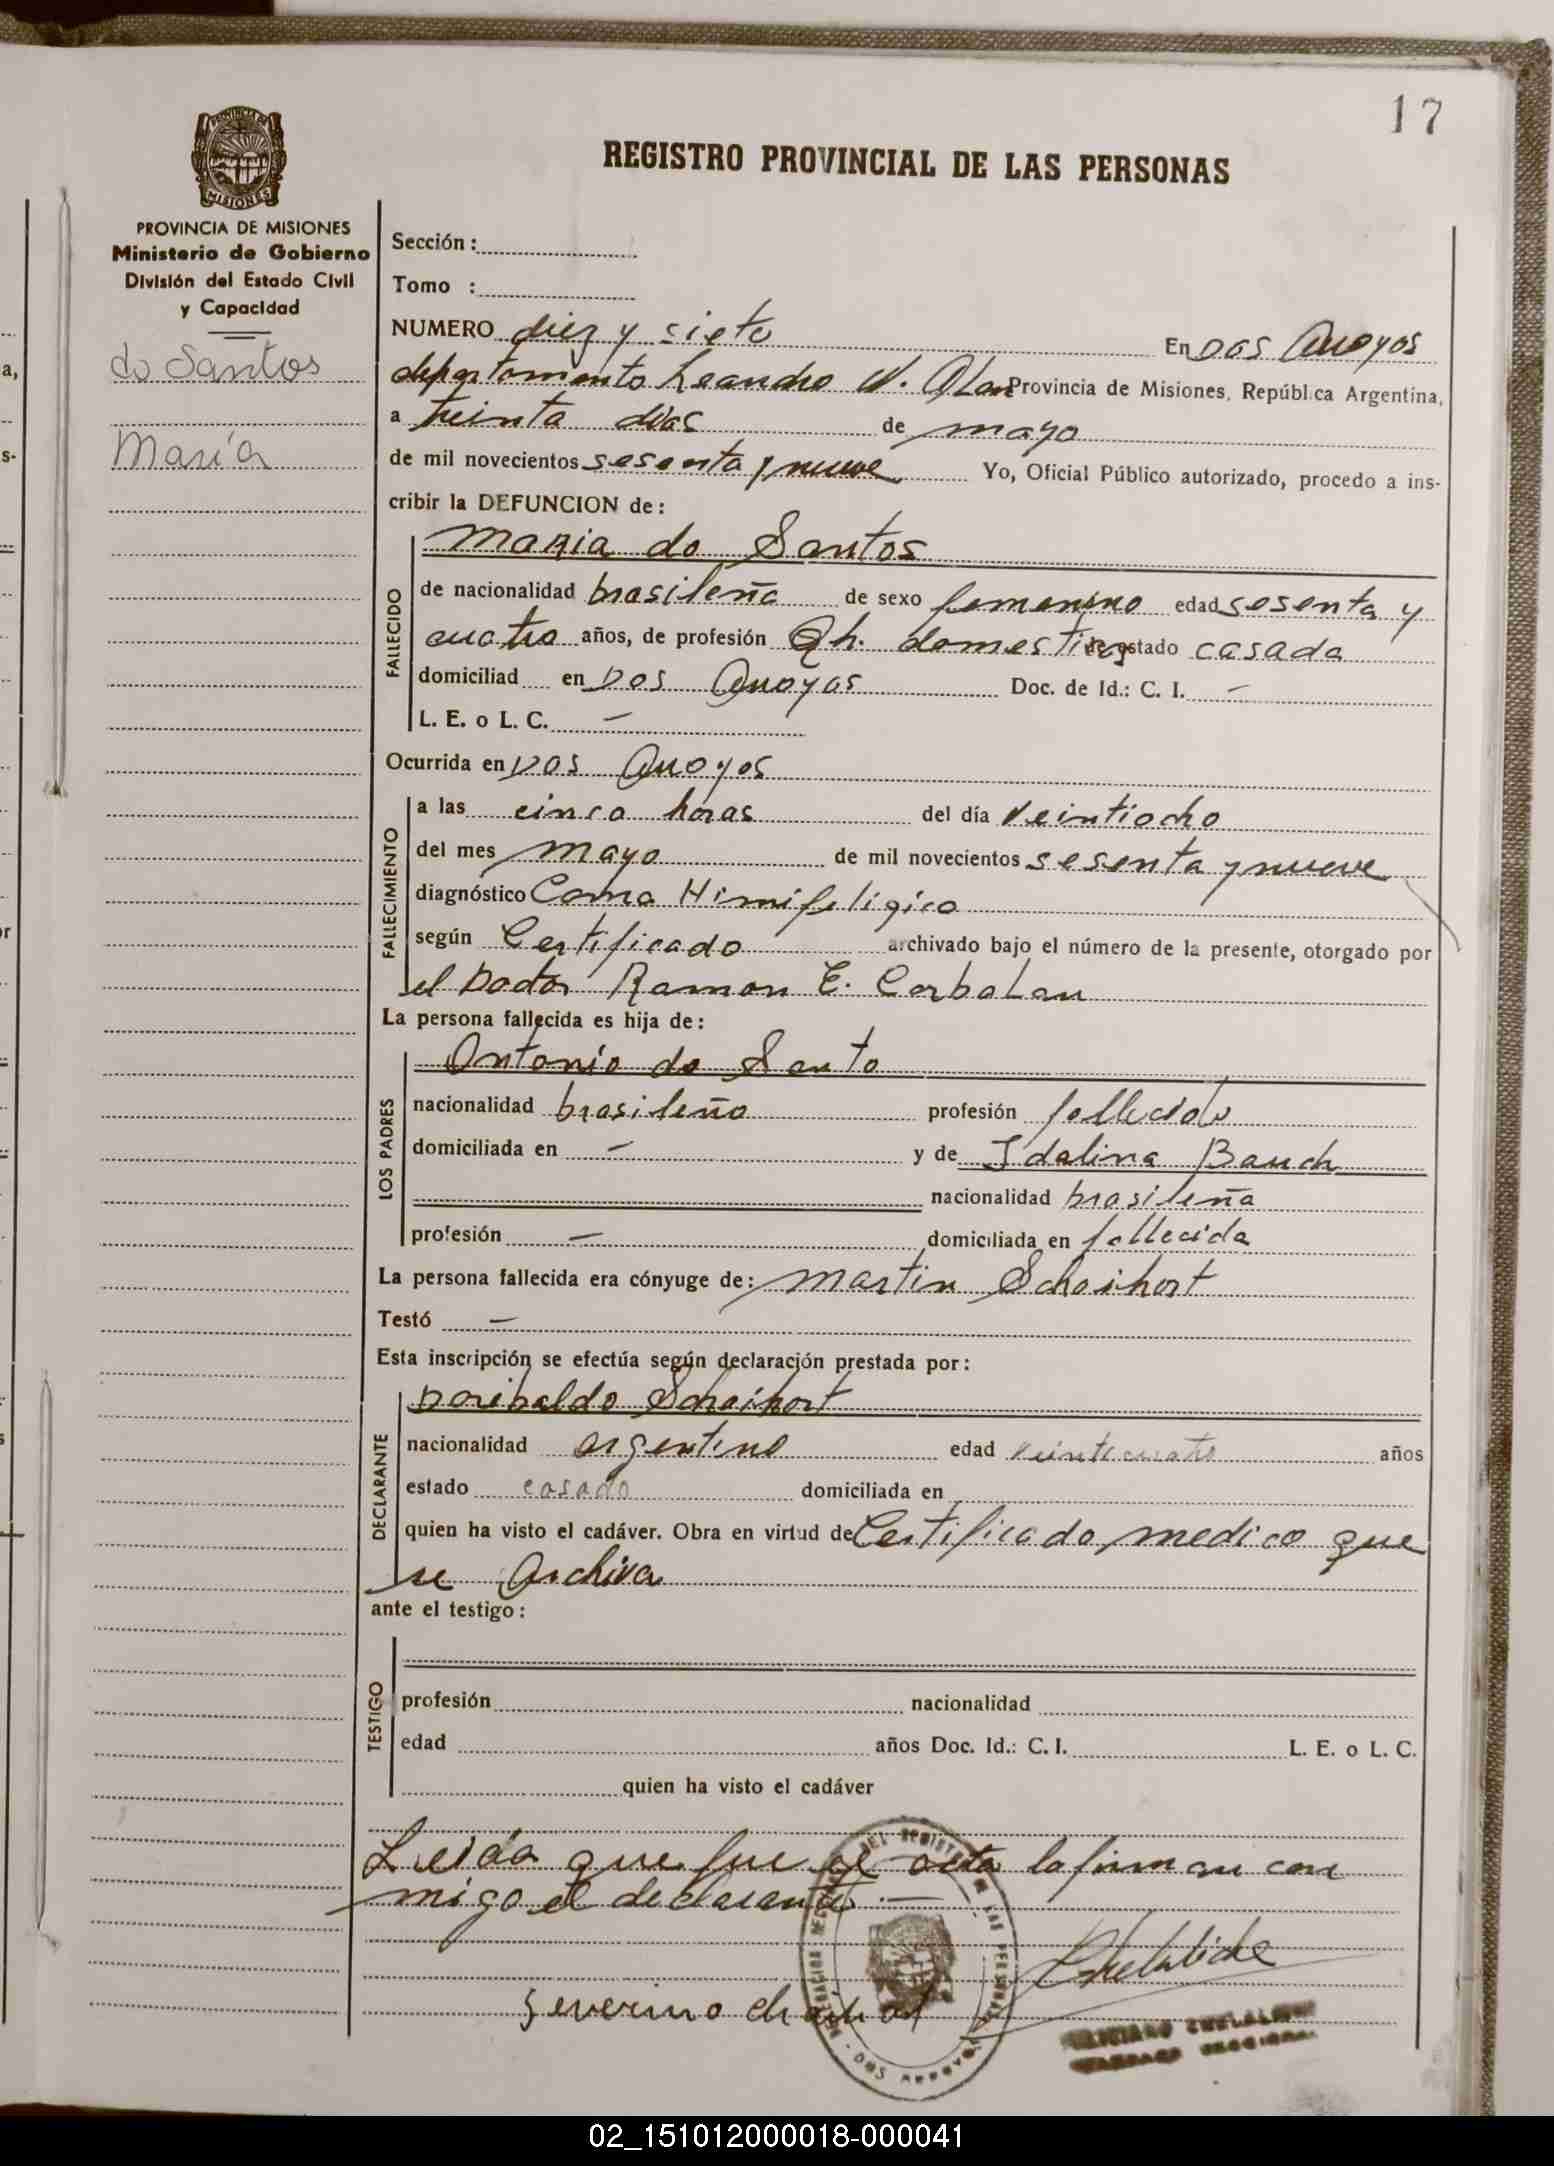 17
PROVINCIA DE MISIONES
PROVINCIA DE MISIONES
Ministerio de Gobierno
División del Estado Civil
y Capacidad
do Santos
María
REGISTRO PROVINCIAL DE LAS PERSONAS
Sección :
Tomo :
NUMERO diez y siete En Dos Arroyos
departamento Leandro N. Alem Provincia de Misiones, República Argentina,
a treinta dias de mayo
de mil novecientos sesenta y nueve Yo, Oficial Público autorizado, procedo a ins-
cribir la DEFUNCION de :
FALLECIDO
Maria do Santos
de nacionalidad brasileña de sexo femenino edad sesenta y
cuatro años, de profesión Qh. domesticos de estado casada
domiciliad en Dos Arroyos Doc. de Id.: C. I. –
L. E. o L. C. –
Ocurrida en Dos Arroyos
FALLECIMIENTO
a las cinco horas del día veintiocho
del mes mayo de mil novecientos sesenta y nueve
diagnóstico Coma Himifeligico
según Certificado archivado bajo el número de la presente, otorgado por
el Doctor Ramon E. Corbalan
La persona fallecida es hija de :
LOS PADRES
Antonio do Santo
nacionalidad brasileño profesión fallecido
domiciliada en – y de Idalina Bauch
nacionalidad brasileña
profesión – domiciliada en fallecida
La persona fallecida era cónyuge de : Martin Schaihort
Testó –
Esta inscripción se efectúa según declaración prestada por :
DECLARANTE
Doribaldo Schaihort
nacionalidad argentino edad veinticuatro años
estado casado domiciliada en
quien ha visto el cadáver. Obra en virtud de Certificado medico que
se Archiva
ante el testigo :
TESTIGO
profesión nacionalidad
edad años Doc. Id.: C. I. L. E. o L. C.
quien ha visto el cadáver
Leida que fue el acta la firman con
migo el declarante. –
Severino
02_151012000018-000041